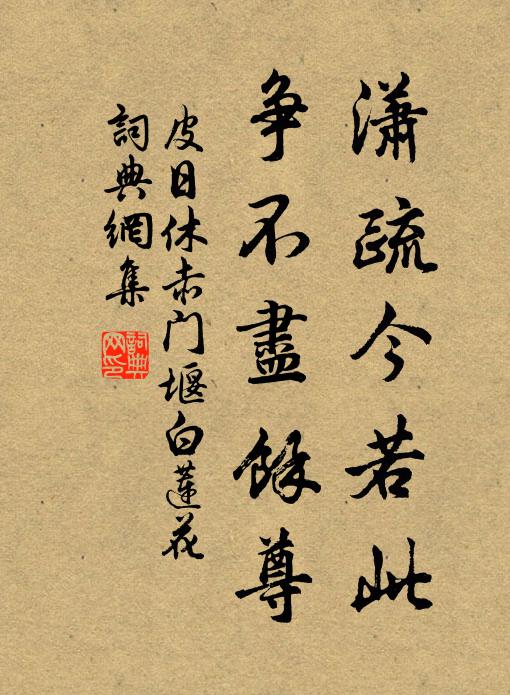 瀟疏今若此
争不盡餘尊
皮日休赤门堰白蓮花
詞典網集
詞典网印